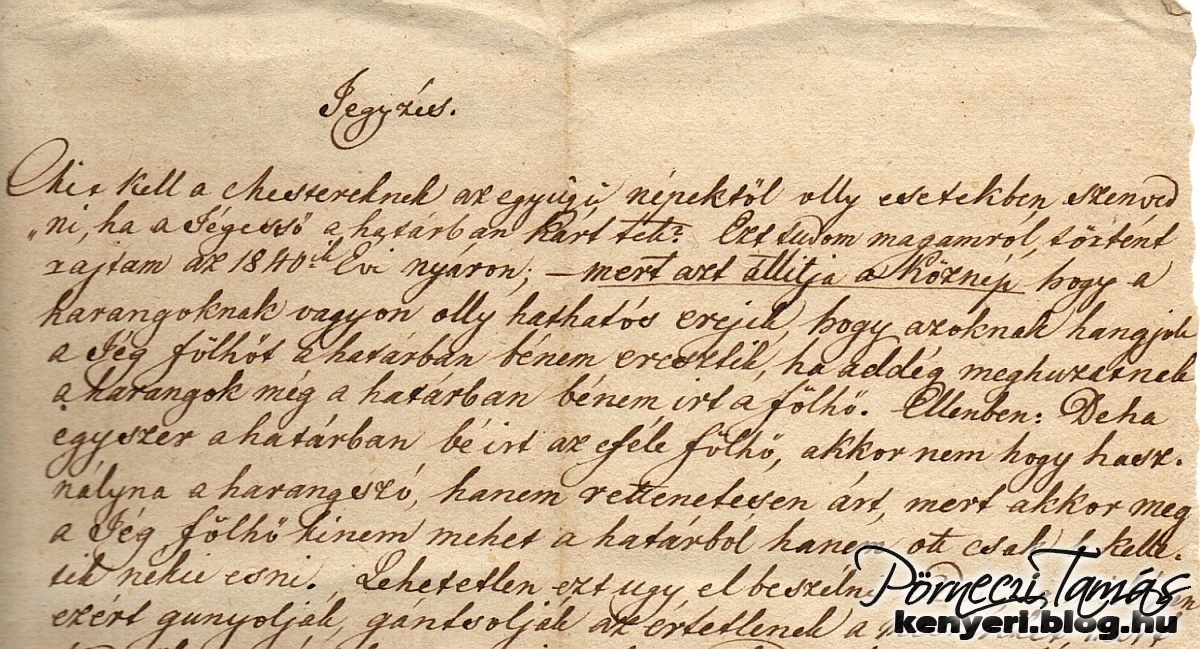 Jegyzés.
Mit kell a Mestereknek az együgyü népektöl olly esetekben szenved
„ni, ha a Jégessö a határban Kárt tett? Ezt tudom magamról, történt
rajtam az 1840ik Évi nyáron; – mert azt állitja a Köznép hogy a
harangoknak vagyon olly hathatós erejek, hogy azoknak hangjok
a Jég fölhöt a határban bénem eresztik, ha addég meghuzatnek
a harangok még a határban bénem irt a fölhö. Ellenben: De ha
egyszer a határban bé irt az eféle fölhö, akkor nem hogy hasz-
nályna a harangszó, hanem rettenetesen árt, mert akkor meg
a Jég fölhö kinem mehet a határból hanem ott csak kelle-
tik nekie esni. Lehetetlen ezt ugy el beszéln
ezért gunyolják, gántsolják az értetlenek a
Pörneczi Tamás
kenyeri.blog.hu